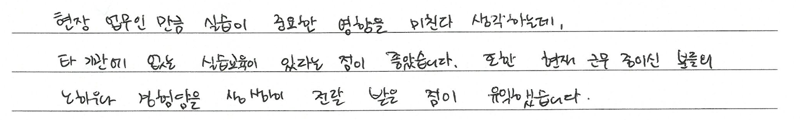 현장 업무인 만큼 실습이 중요한 영향을 미친다 생각하는데,
타 기관에 없는 실습교육이 있다는 점이 좋았습니다. 또한 현재 근무 중이신 분들의
노하우나 경험담을 상세하이 전달 받은 점이 유익했습니다.